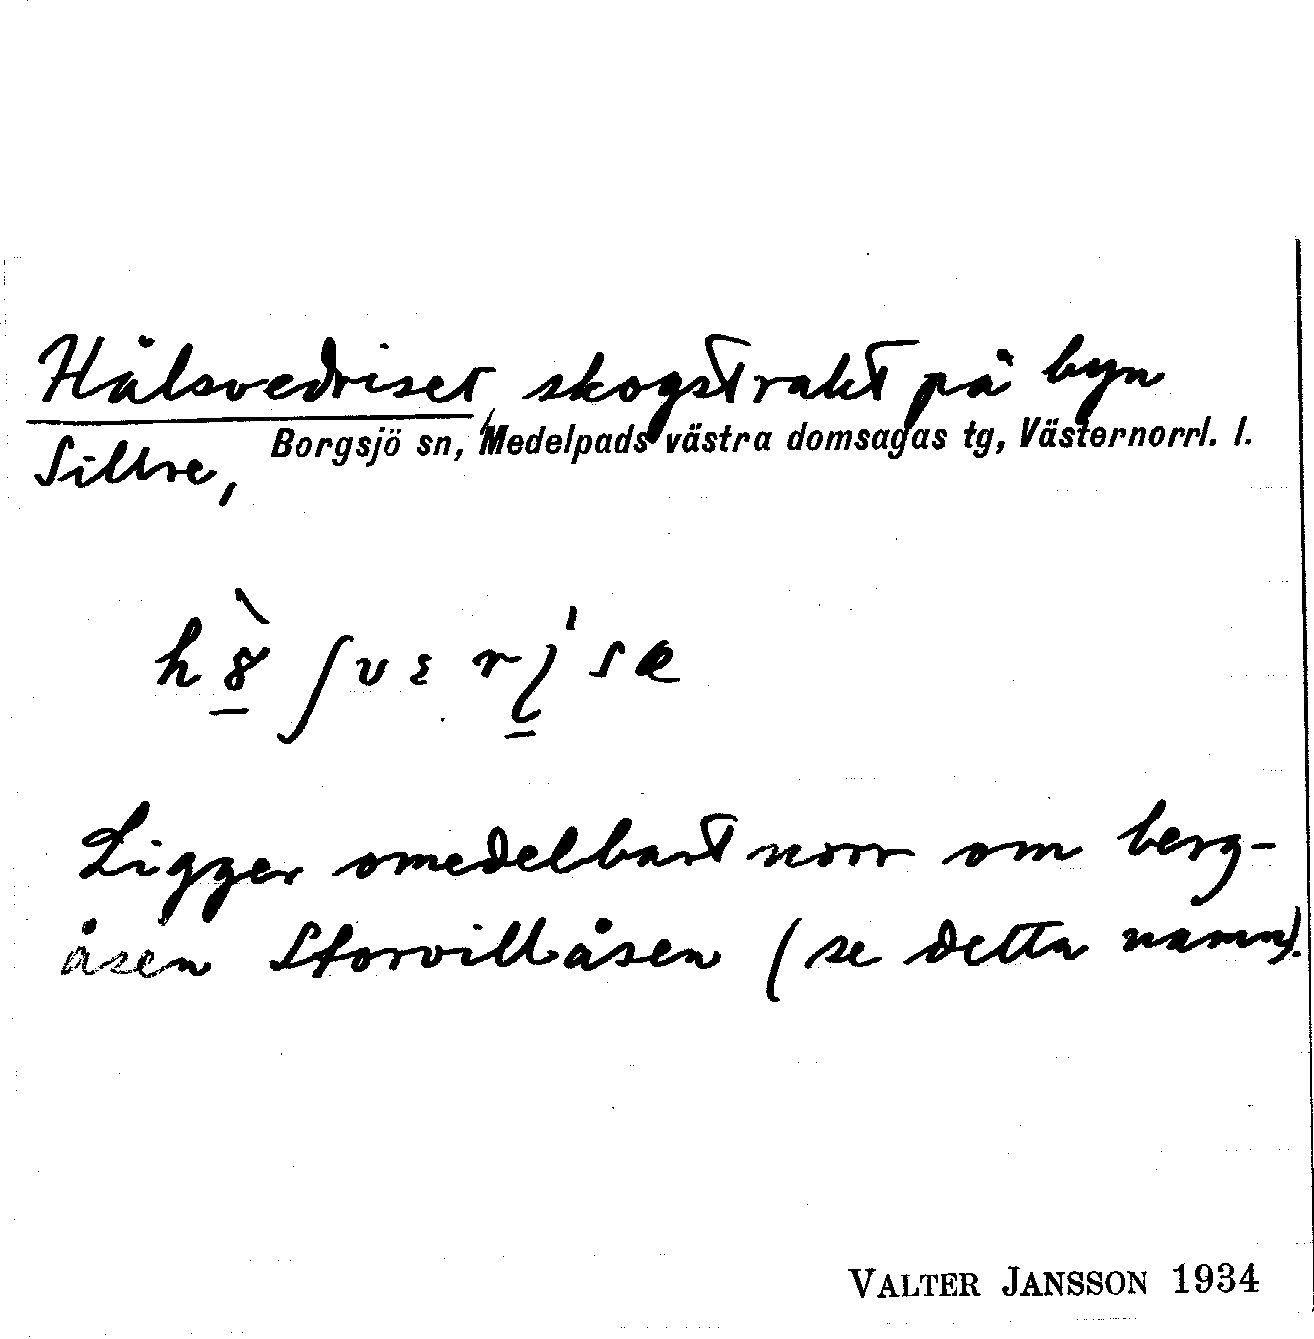 Hålsvedriset, skogstrakt på byn
Sillre, Borgsjö sn, Medelpads västra domsagas tg, Västernorrl. l.
Ligger omedelbart norr om berg-
åsen Storvillåsen (se detta namn).
VALTER JANSSON 1934